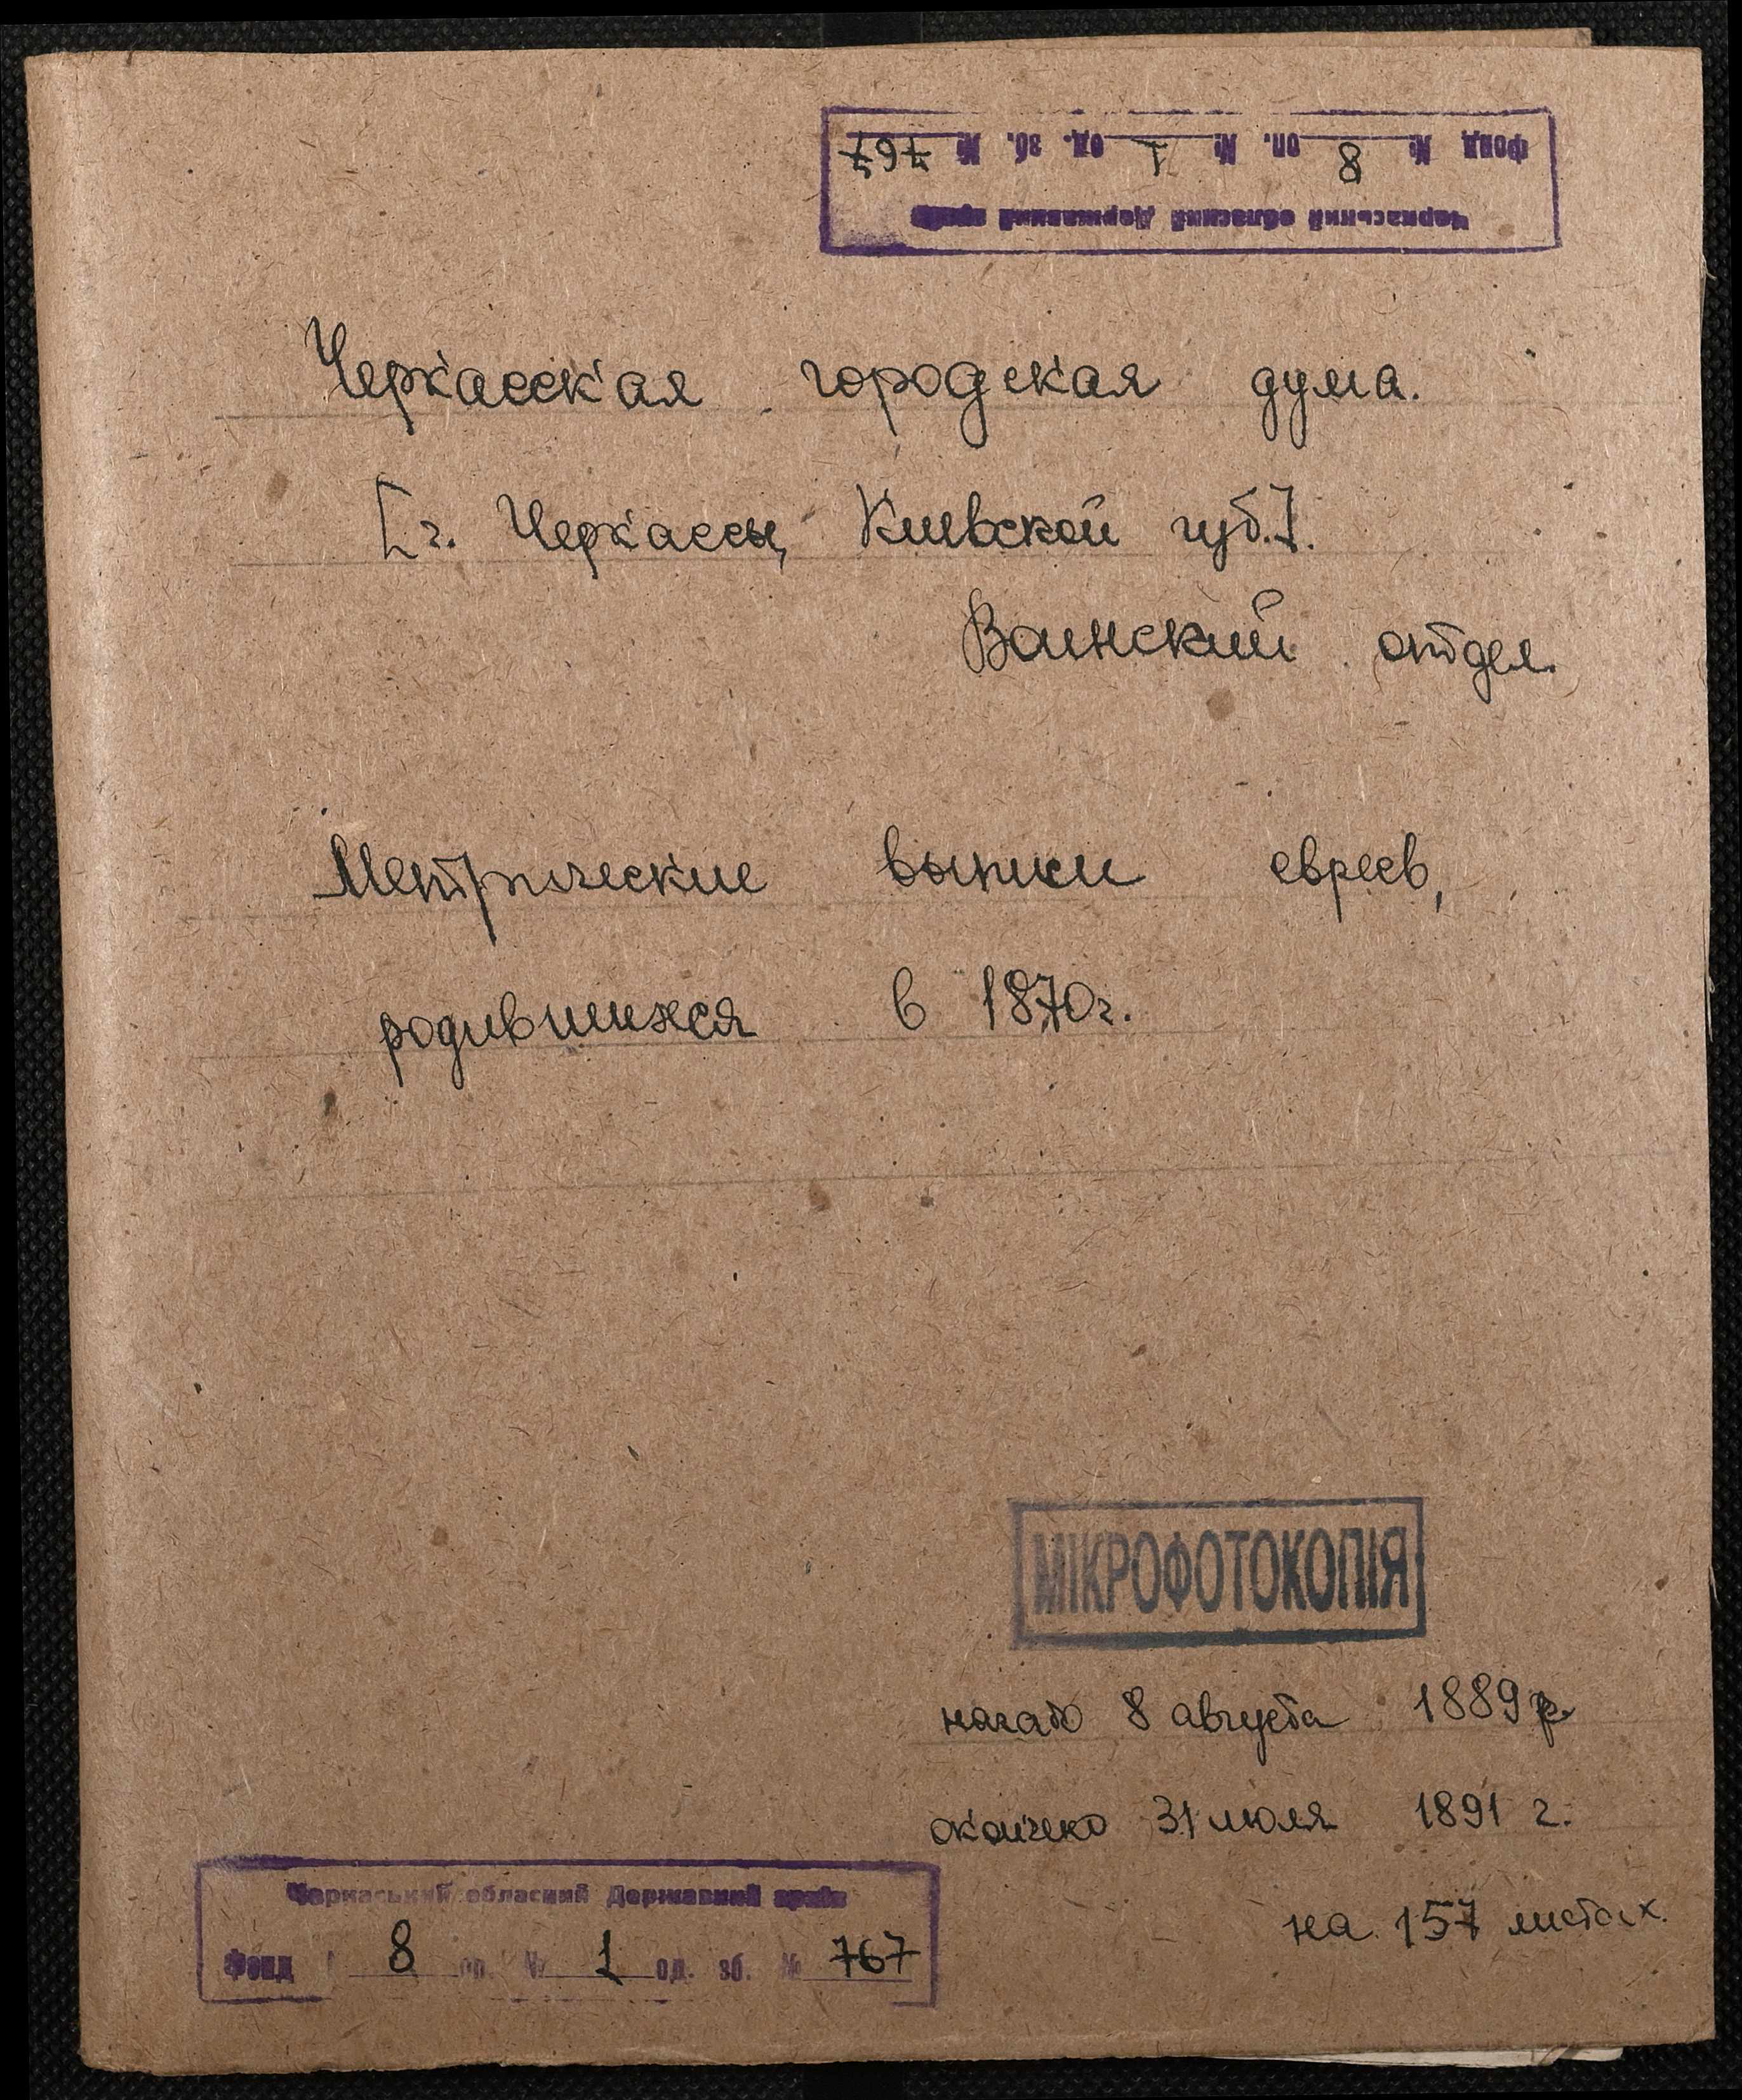 Фонд № 8 оп. № 1 од. зб. № 767
Черкаський обласний Державний архів
Черкасская городская дума.
[г. Черкассы, Киевской губ.].
Воинский отдел.
Метрические выписи евреев,
родившихся в 1870г.
МІКРОФОТОКОПІЯ
начато 8 августа 1889 г.
окончено 31 июля 1891 г.
на 157 листах.
Черкаський обласний Державний архів
Фонд № 8 оп. № 1 од. зб. № 767